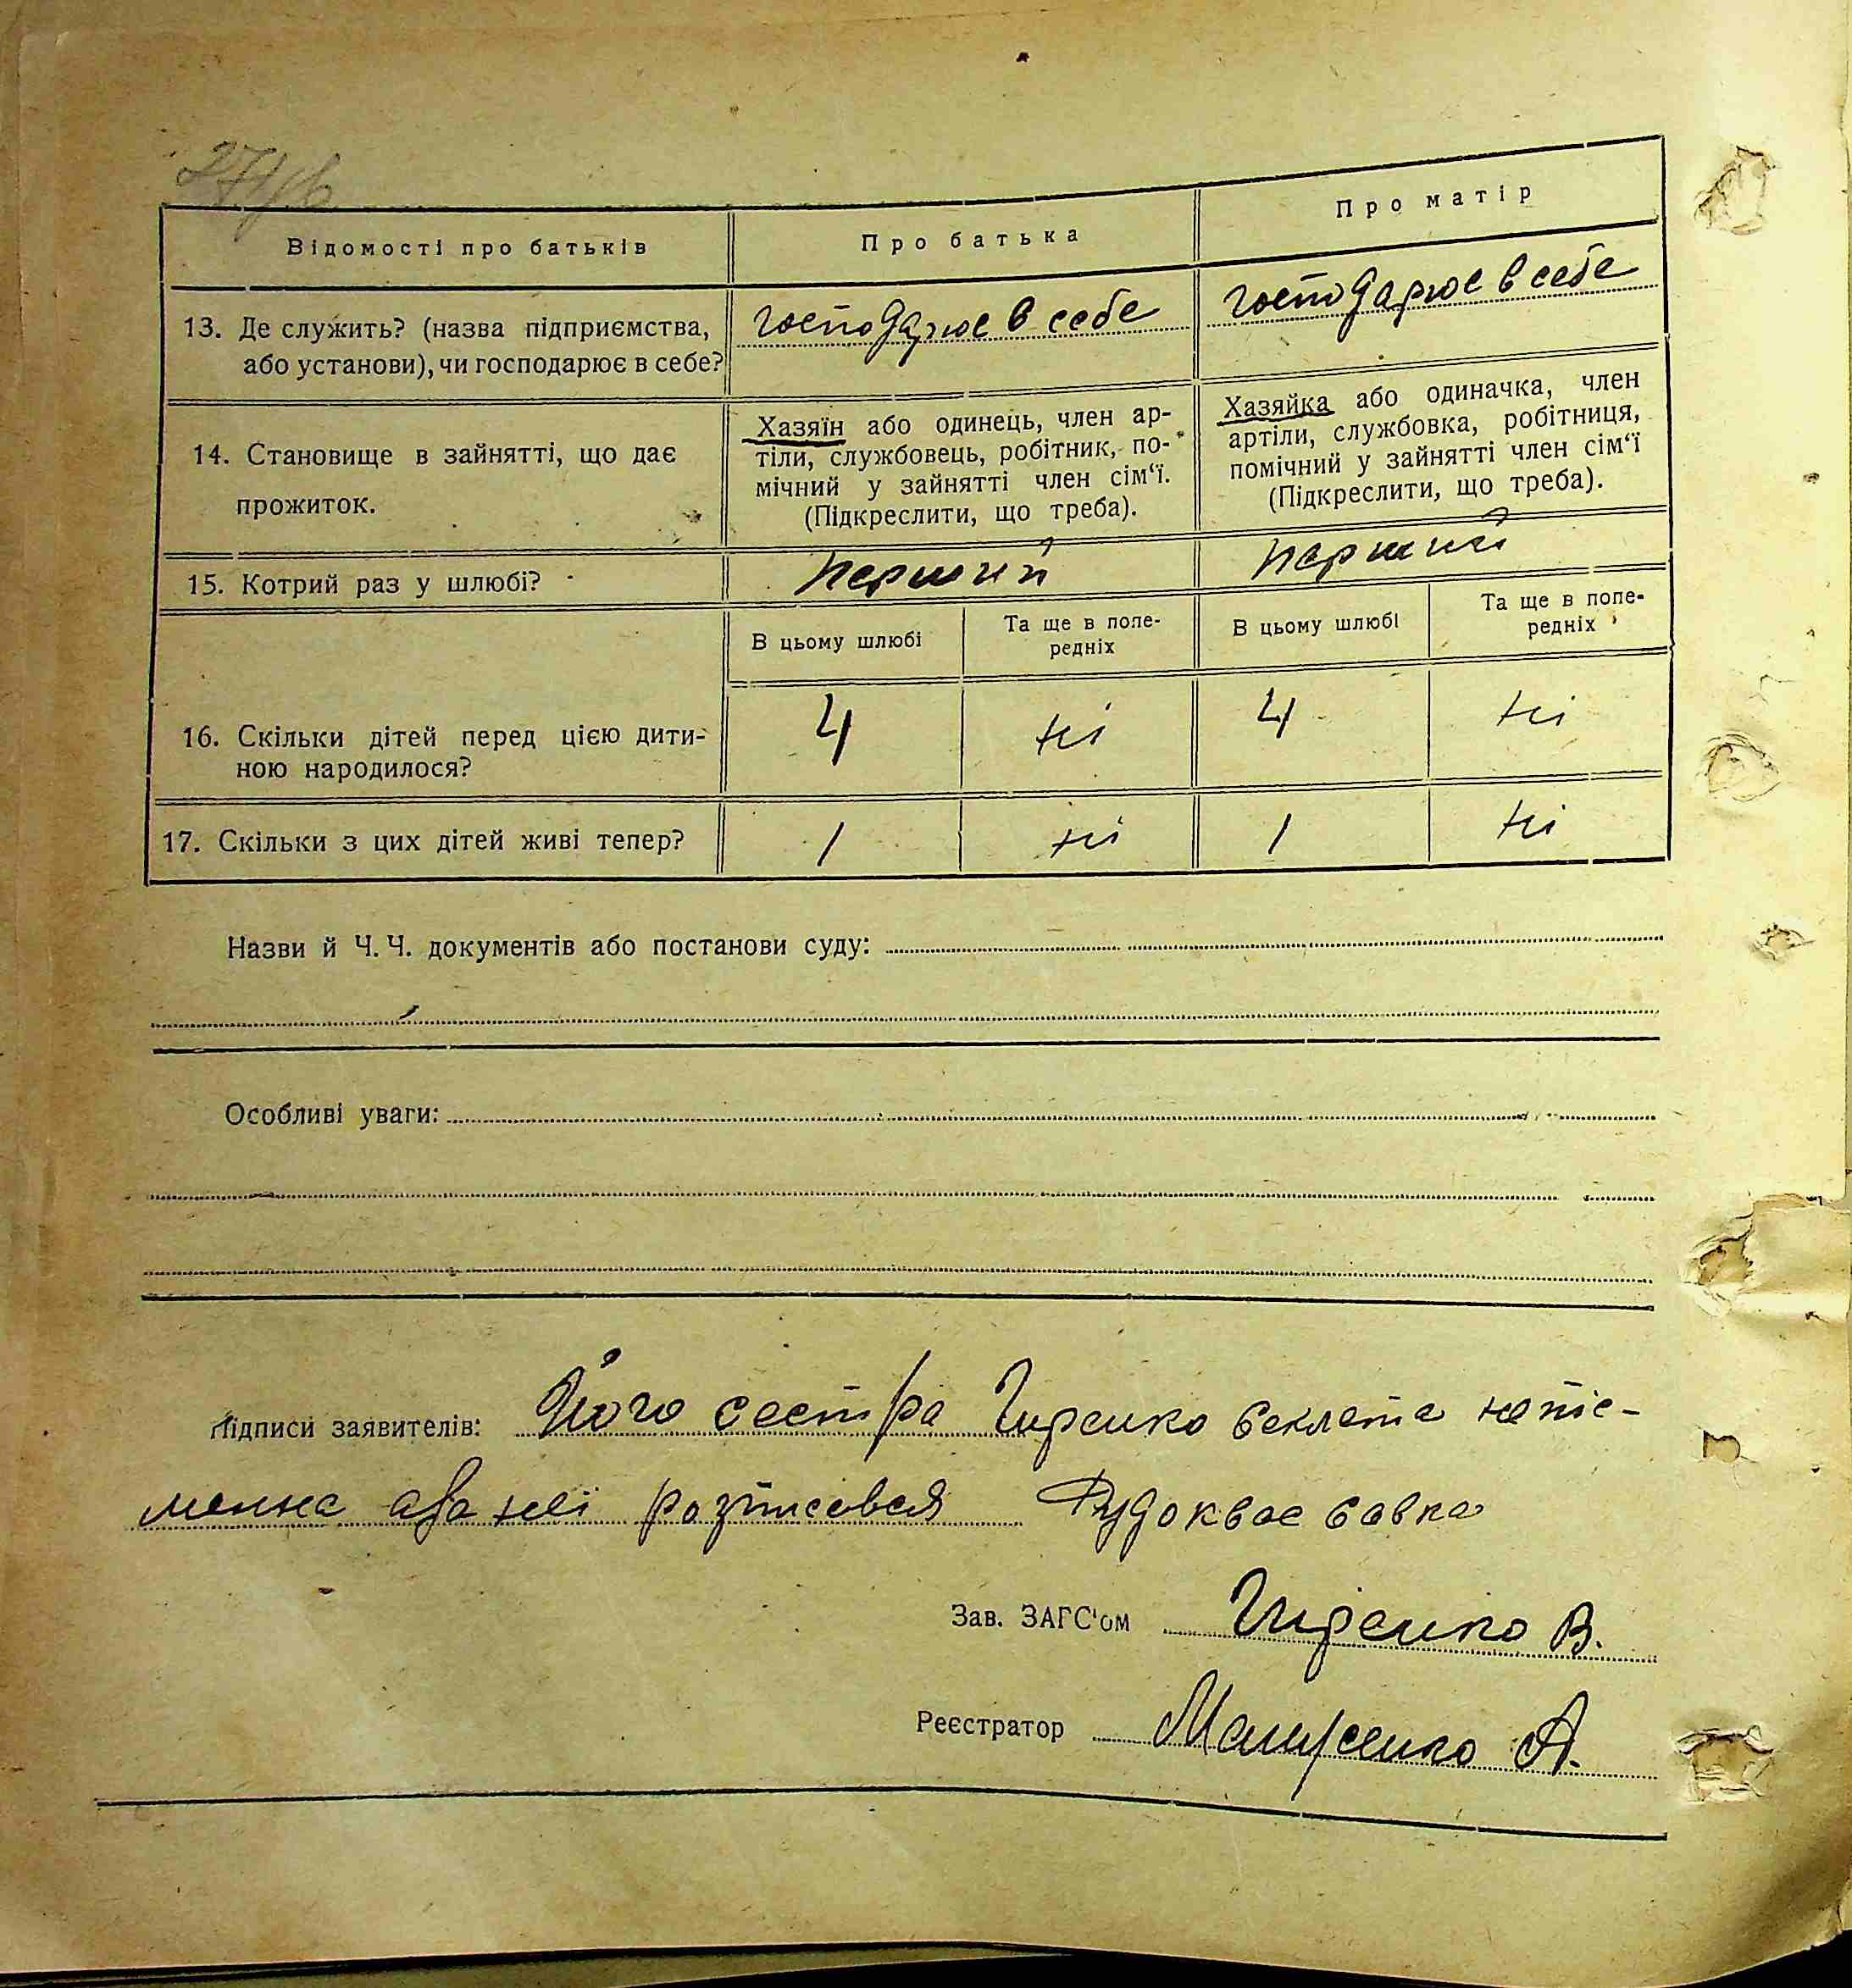 Відомості про батьків
Про батька
Про матір
13. Де служить? (назва підприємства,
або установи), чи господарює в себе?
господарює в себе
господарює в себе
14. Становище в зайнятті, що дає
прожиток.
Хазяїн або одинець, член ар-
тіли, службовець, робітник, по-
мічний у зайнятті член сім‘ї.
(Підкреслити, що треба).
Хазяйка або одиначка, член
артіли, службовка, робітниця,
помічний у зайнятті член сім‘ї
(Підкреслити, що треба).
15. Котрий раз у шлюбі?
перший
перший
В цьому шлюбі
Та ще в попе-
редніх
В цьому шлюбі
Та ще в попе-
редніх
16. Скільки дітей перед цією дити-
ною народилося?
4
ні
4
ні
17. Скільки з цих дітей живі тепер?
1
ні
1
ні
Назви й Ч. Ч. документів або постанови суду:
Особливі уваги:
Підписи заявителів: Його сестра Гиренко Векла
за неї розписався Рудоквас Савка
Зав. ЗАГС'ом Гиренко В.
Реєстратор